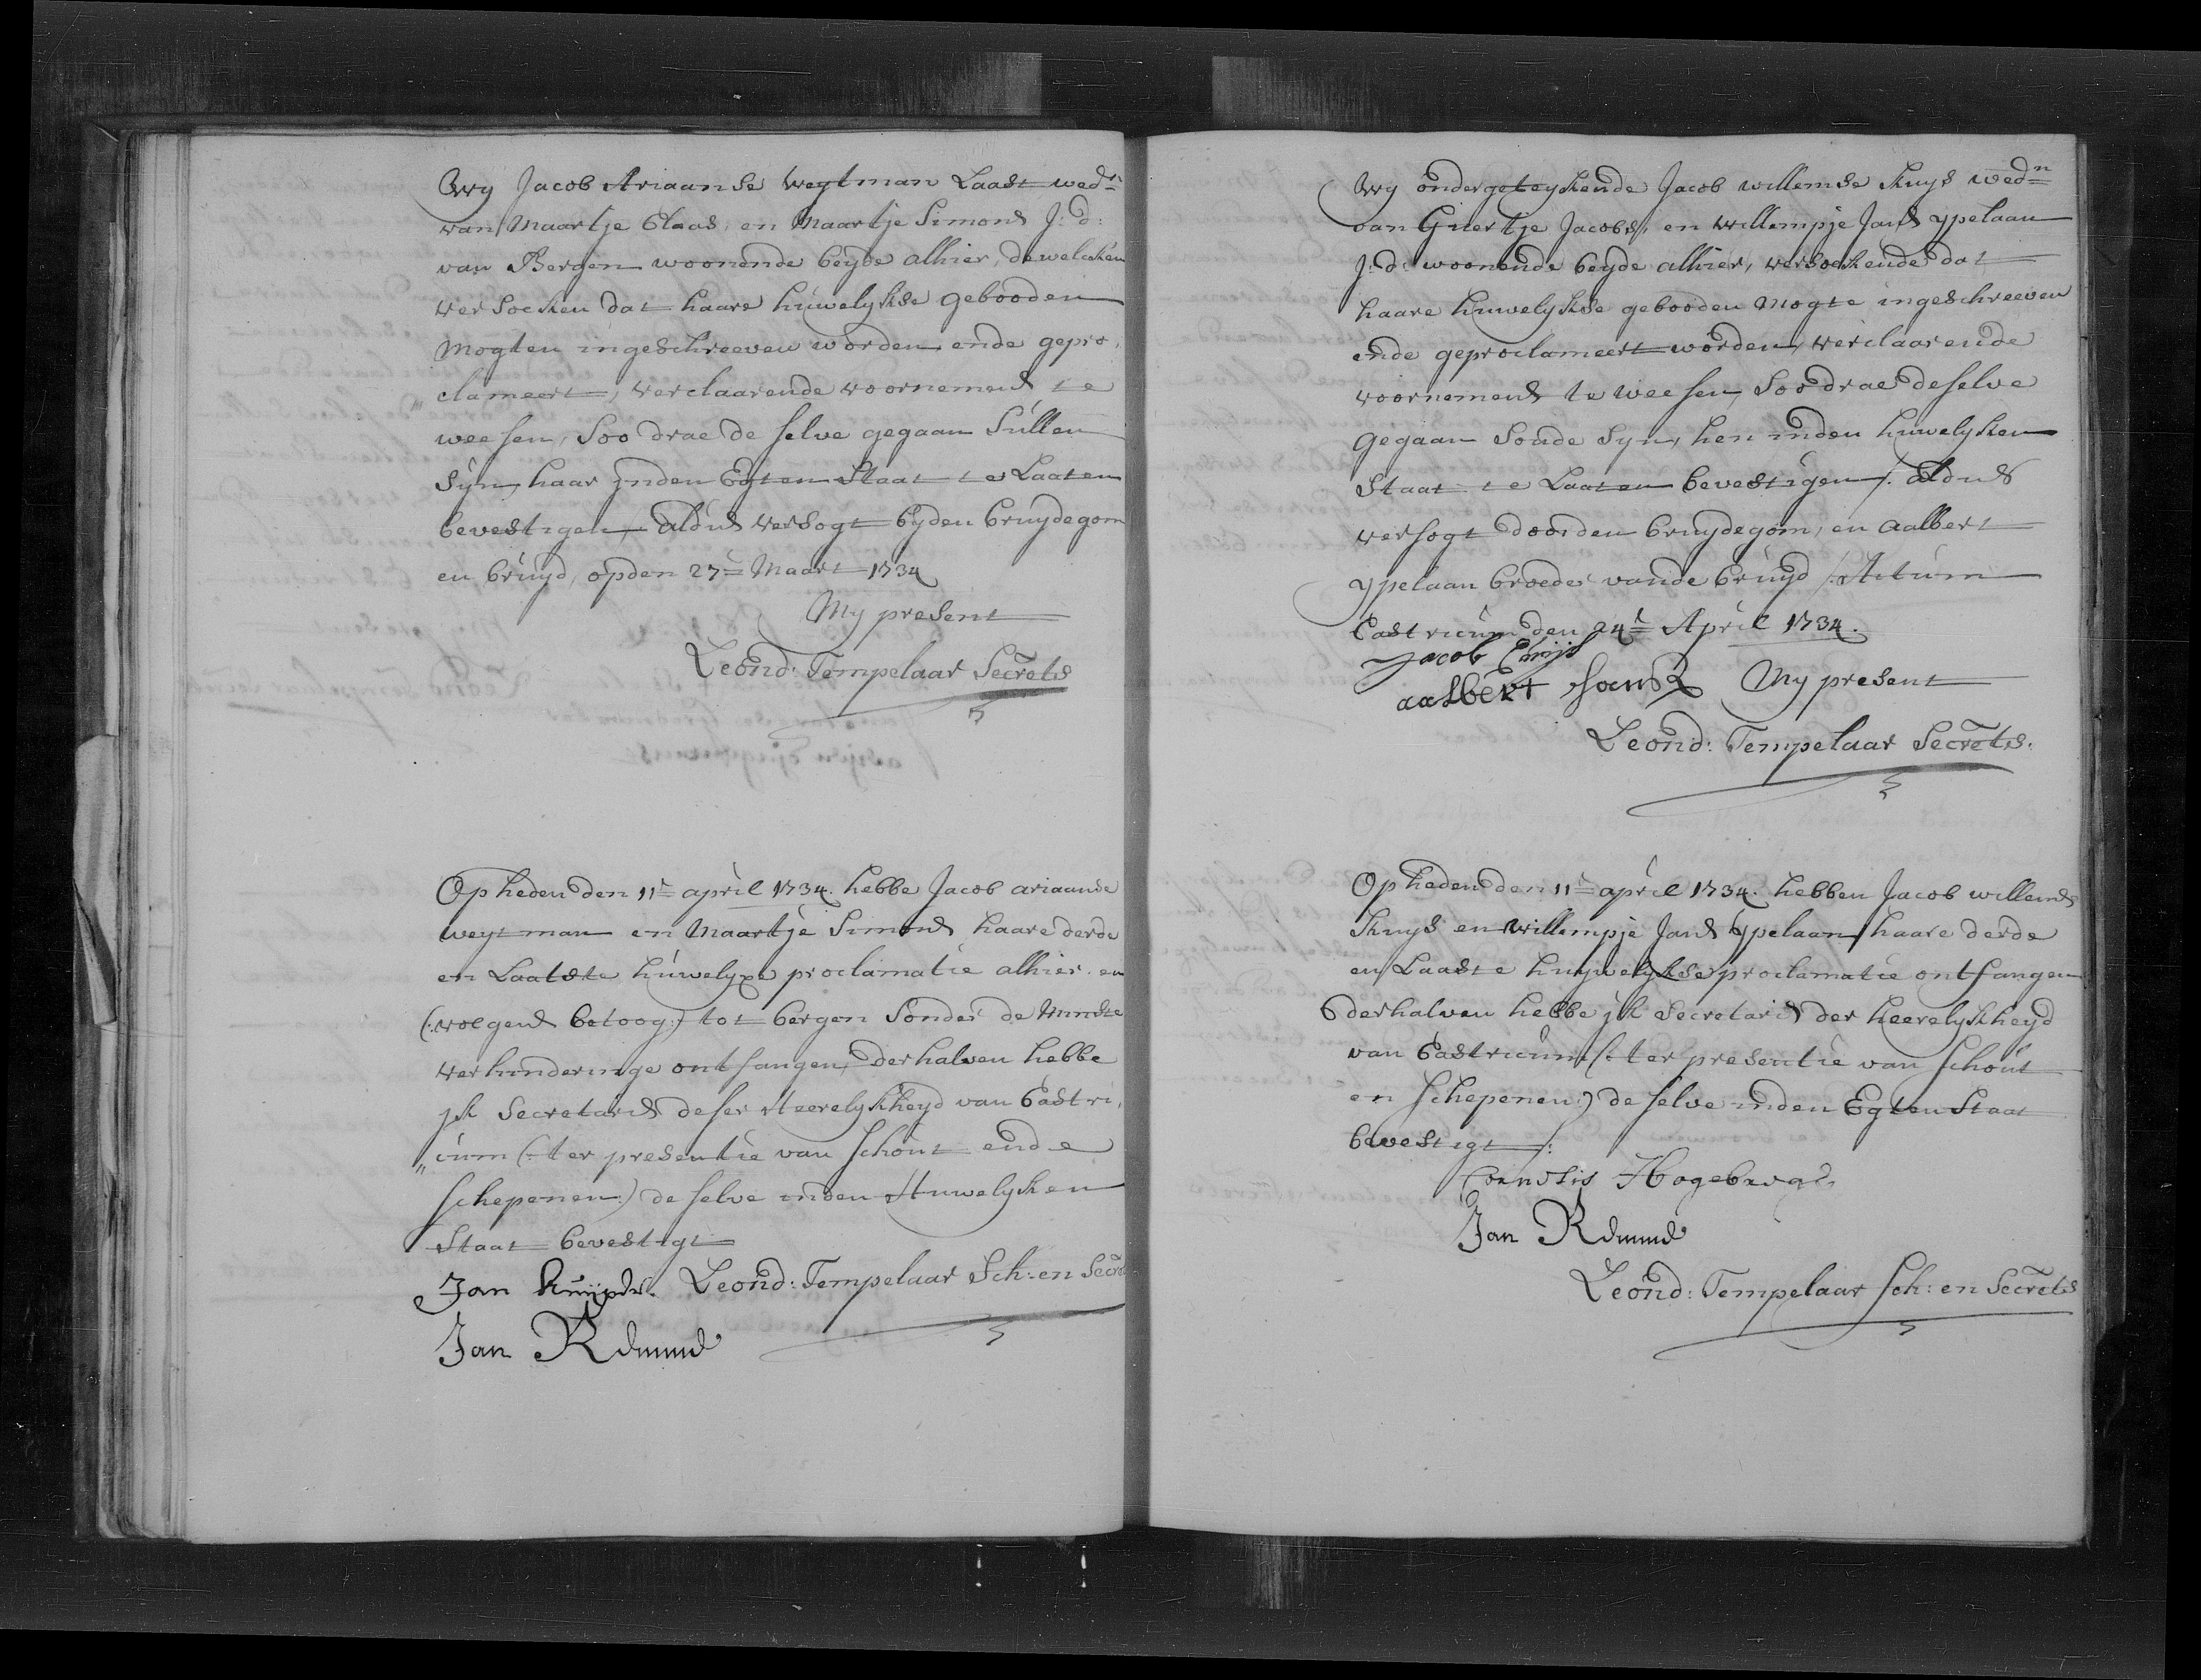 Wy Jacob Ariaanse Weytman Laast wedr.
van Maartje Claas, en Maartje Simons J: d:
van Bergen woonende beyde alhier, dewelcken
versocken dat haare huwelykse gebooden
Mogten ingeschreeven worden ende gepro,
„ clameert, verclaarende voornemens te
weesen, Soo drae de selve gegaan sullen
syn, haar inden Egten Staat te Laaten
bevestigen, aldus versogt byden bruydegom
en bruyd, opden 27e Maart 1734
My present
Leond: Tempelaar Secrets
Op heden den 11e april 1734. hebbe Jacob ariaanse
weytman en Maartje Simons haare derde
en Laatste huwelyxe proclamatie alhier. en
(:volgens betoog:) tot bergen sonder de Minste
verhinderinge ontfangen, derhalven hebbe
jk Secretaris deser Heerelykheyd van Castri,
„ cum (:ter presentie van Schout ende
schepenen:) de selve inden Huwelyken
Staat bevestigt
Jan Kuijper. Leond: Tempelaar Sch: en Secre
Jan
Wy ondergeteykende Jacob willemse Kuys wedn
van Guertje Jacobs, en willempje Jans ypelaan
J: d: woonende beyde alhier, versoekende dat
haare huwelykse gebooden Mogte ingeschreeven
ende geproclameert worden, verclaarende
voornemens te weesen, Soo drae deselve
gegaan soude syn, hen inden huwelyken
Staat te Laaten bevestigen /: aldus
versogt door den bruydegom, en aalbert
ypelaan broeder vande bruyd /: Actum
Castricum den 24e April 1734.
Jacob
aalbert Jansz My present
Leond: Tempelaar Secrets.
Op heden den 11e april 1734. hebben Jacob willems
Kuys en willempje Jans Ypelaan haare derde
en Laaste huywelykse proclamatie ontfangen
derhalven hebbe jk Secretaris der heerelykheyd
van Castricum (:ter presentie van schout
en schepenen:) de selve inden Egten Staat
bevestigt /:
Cornelis
Jan
Leond: Tempelaar sch: en Secrets